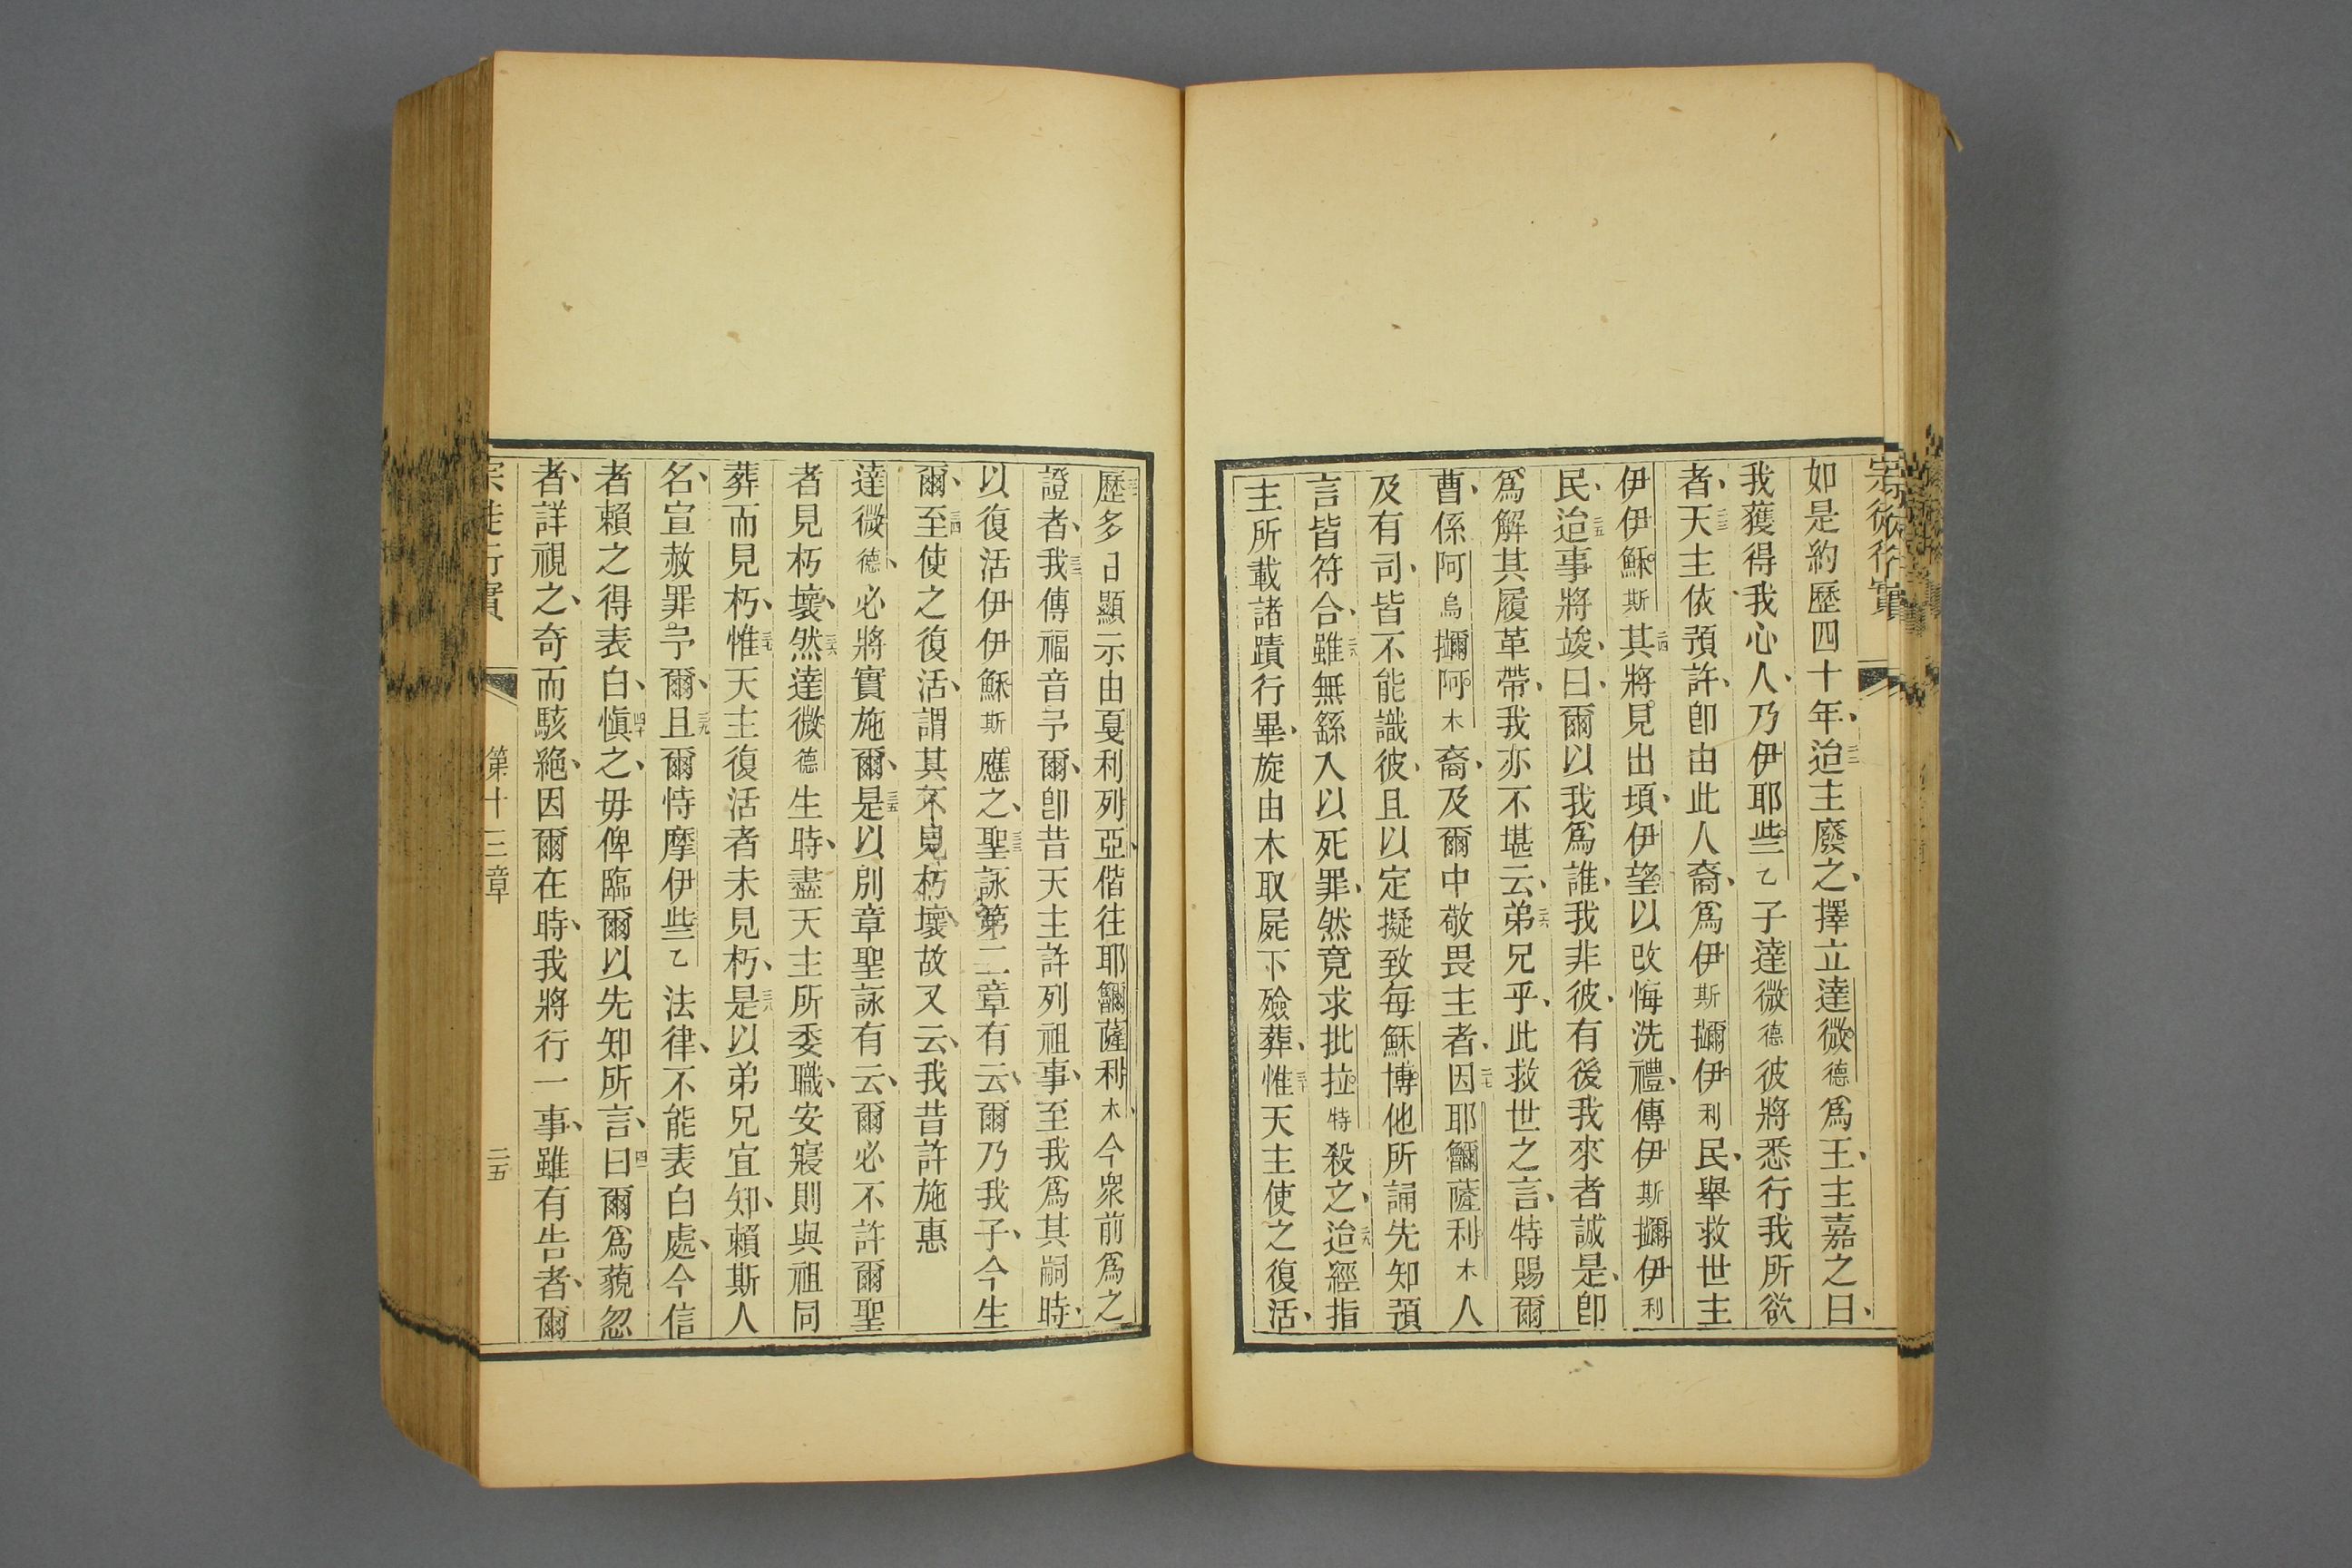 宗徒行實
如是約歷四十年、二二迨主廢之、擇立達微德爲王、主嘉之曰、
我獲得我心人、乃伊耶些乙子達微德彼將悉行我所欲
者、二三天主依預許、卽由此人裔、爲伊斯㒲伊利民、舉救世主
伊伊穌斯二四其將見出頃、伊望以改悔洗禮、傳伊斯㒲伊利
民、二五迨事將竣、曰、爾以我爲誰、我非彼、有後我來者誠是、卽
爲解其履革帶、我亦不堪云、二六弟兄乎、此救世之言、特賜爾
曹、係阿烏㒲阿木裔、及爾中敬畏主者、二七因耶㒲薩利木人
及有司、皆不能識彼、且以定擬致每穌博他所誦先知預
言皆符合、二八雖無繇入以死罪、然竟求批拉特殺之、二九迨經指
主所載諸蹟行畢、旋由木取屍下殮葬、三十惟天主使之復活、
三一歷多日顯示由戛利列亞、偕往耶㒲薩利木、今衆前爲之
證者、三二我傳福音予爾、卽昔天主許列祖事、至我爲其嗣時、
以復活伊伊穌斯應之、三三聖詠第二章有云、爾乃我子、今生
爾、三四至使之復活、謂其不見朽壞故又云、我昔許施惠
達微德、必將實施爾、三五是以別章聖詠有云、爾必不許爾聖
者見朽壞、三六然達微德生時、盡天主所委職、安寢則與祖同
葬而見朽、三七惟天主復活者未見朽、三八是以弟兄宜知、賴斯人
名、宣赦罪予爾、三九且爾恃摩伊些乙法律、不能表白處、今信
者賴之得表白、四十愼之、毋俾臨爾以先知所言、四一曰爾爲藐忽
者、詳視之、奇而駭絶、因爾在時、我將行一事、雖有告者、爾
宗徒行實 第十三章 二五